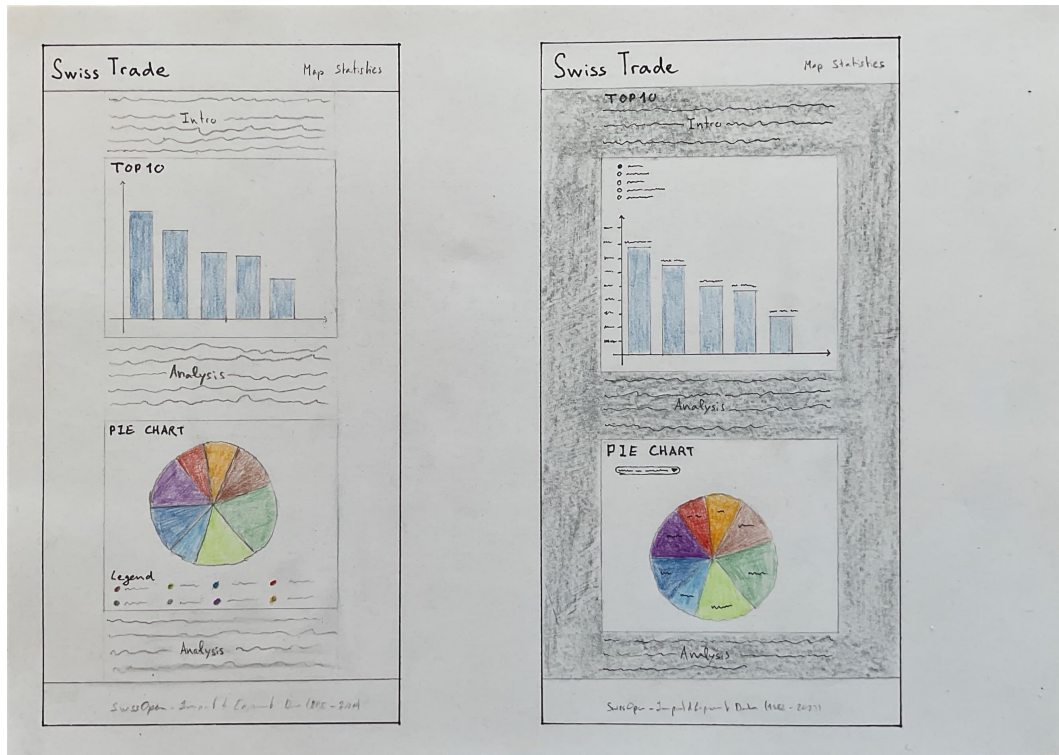 Swiss Trade
Map Statistics
Intro
TOP 10
Analysis
PIE CHART
Legend
Analysis
SwissOpen - Import & Export
Swiss Trade
Map Statistics
TOP 10
Intro
Analysis
PIE CHART
Analysis
SwissOpen - Import & Export Data